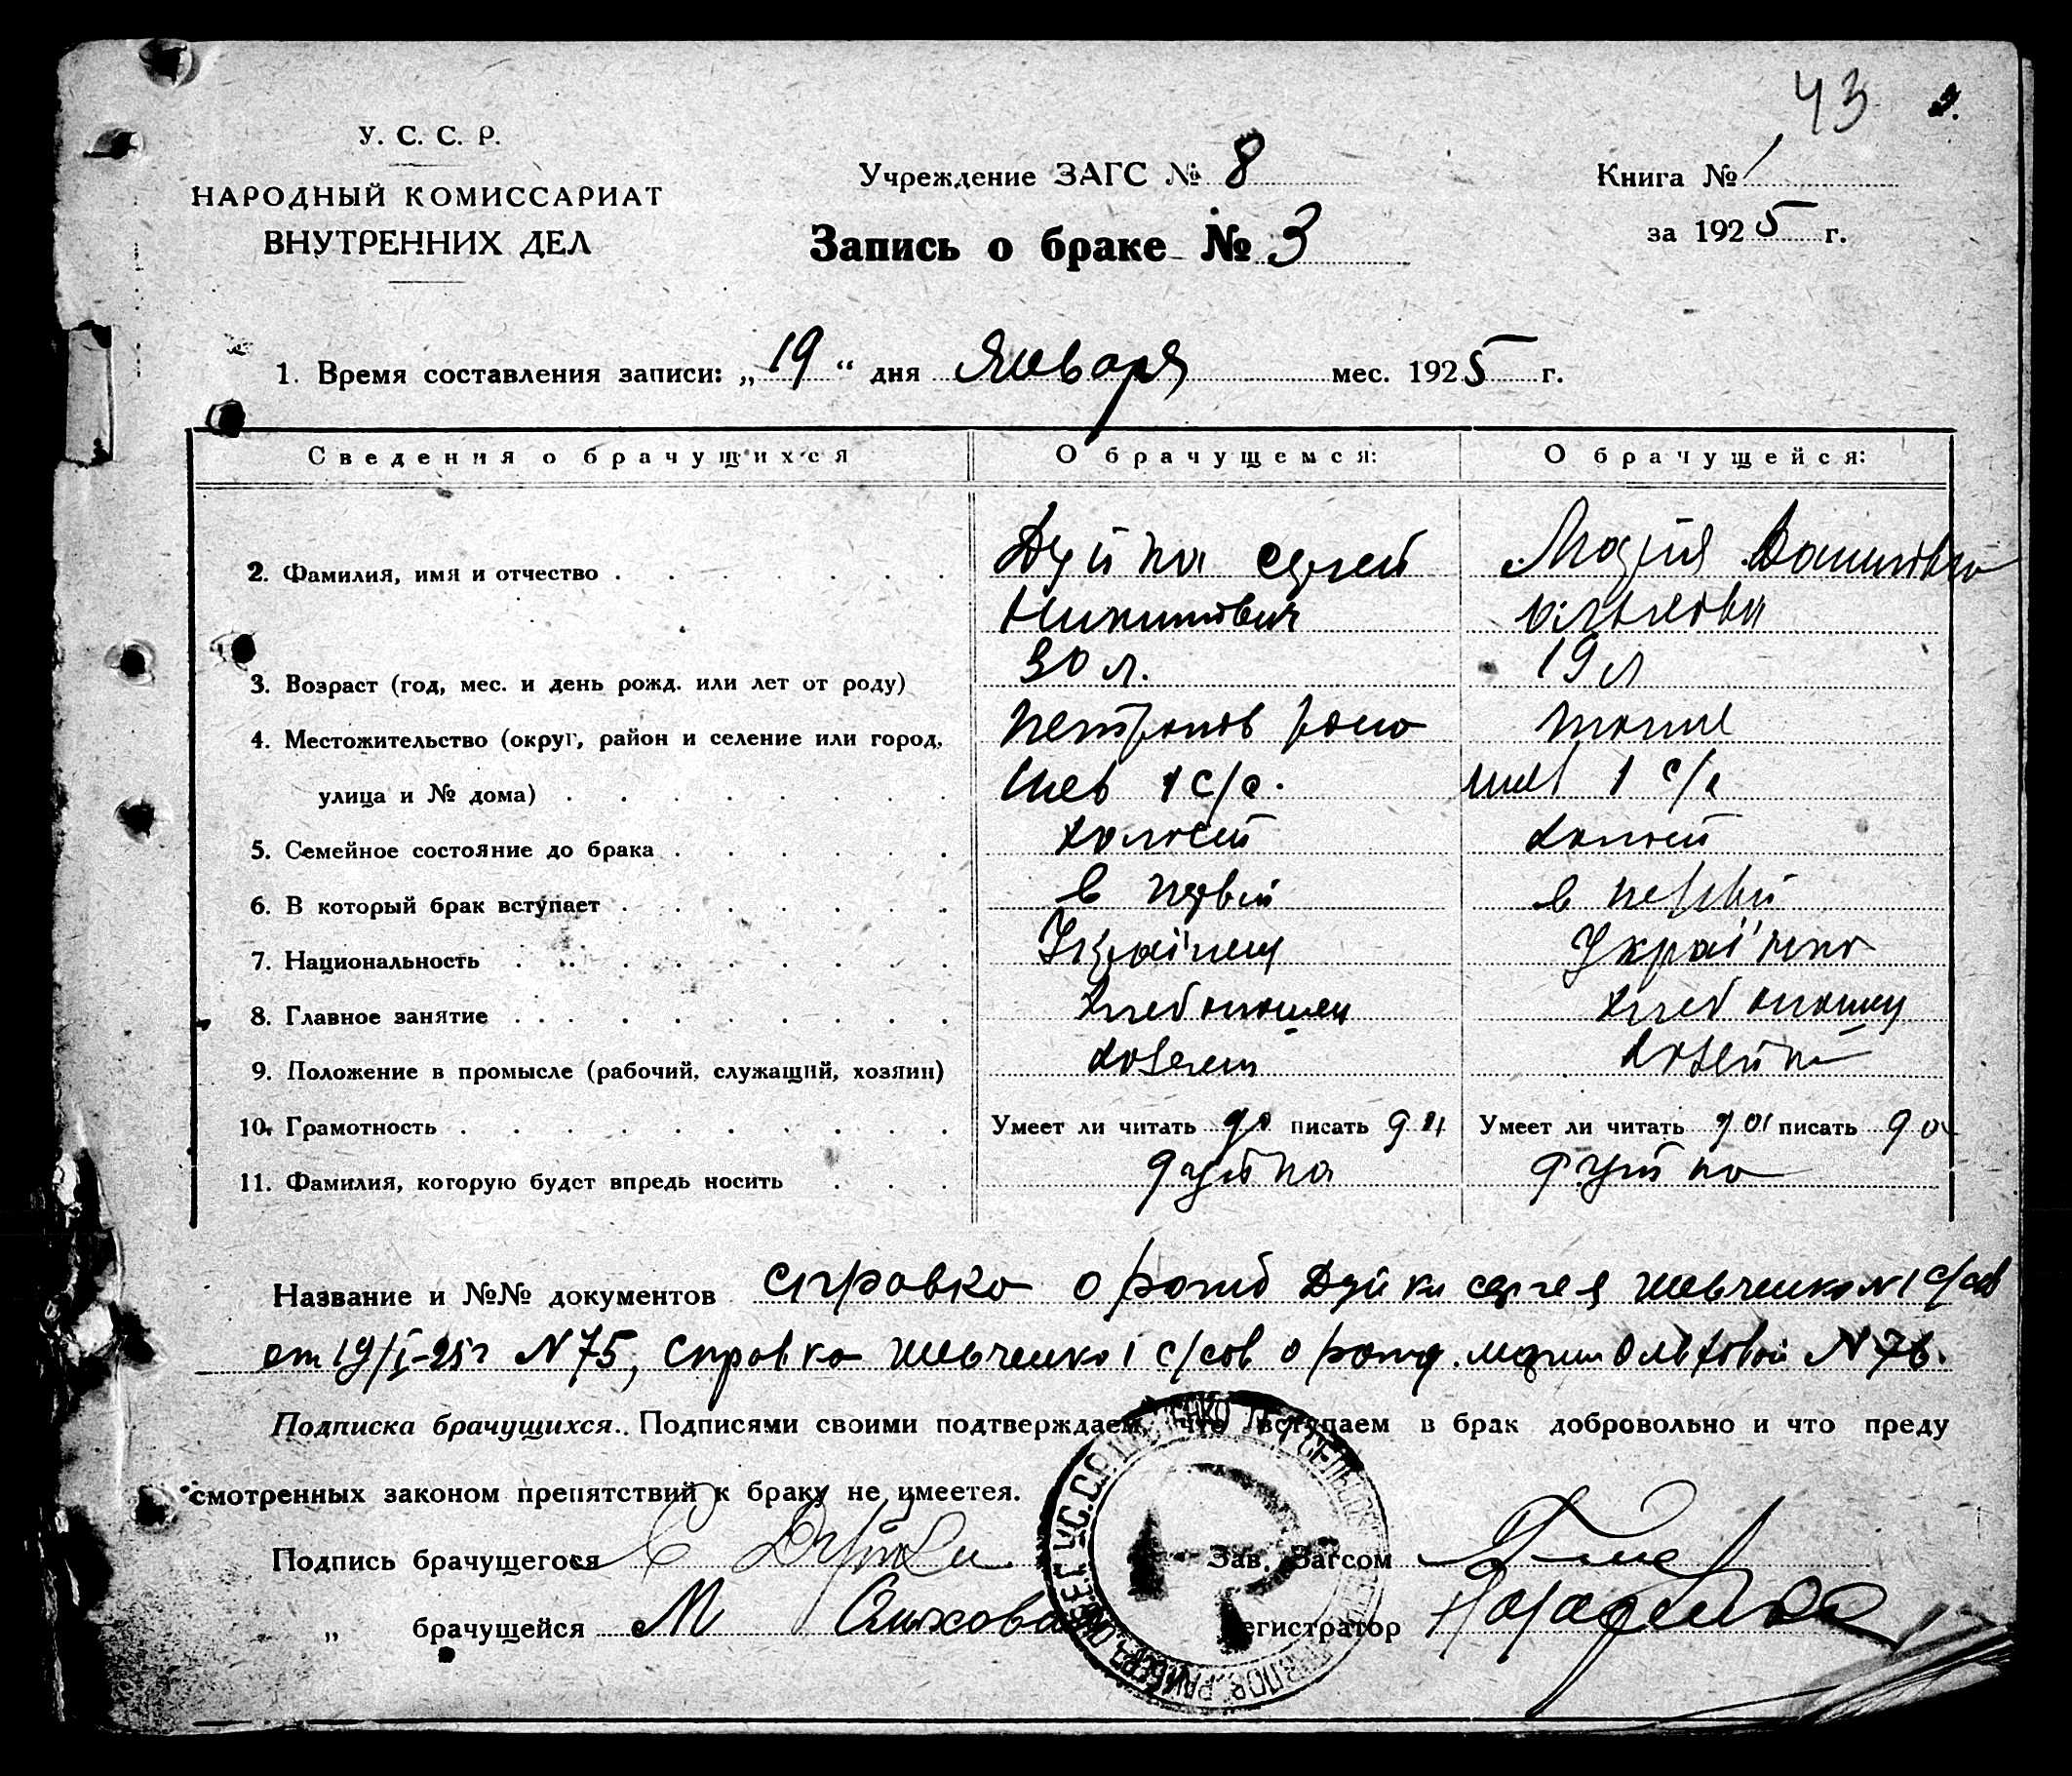 43
У. С. С. Р.
НАРОДНЫЙ КОМИССАРИАТ
ВНУТРЕННИХ ДЕЛ
Учреждение ЗАГС № 8
Запись о браке № 3
Книга № 1
за 1925 г.
1. Время составления записи: „19“ дня Января мес. 1925 г.
Сведения о брачущихся О брачущемся: О брачущейся:
2. Фамилия, имя и отчество Дуйка Сергей Мария
Никитович
3. Возраст (год, мес. и день рожд. или лет от роду) 30 л. 19 л
4. Местожительство (округ, район и селение или город, Петропов
улица и № дома) Шев 1 с/с. Шев 1 с/с
5. Семейное состояние до брака холост холост
6. В который брак вступает в первый в первый
7. Национальность Українец Українка
8. Главное занятие хлебопашец хлебопашец
9. Положение в промысле (рабочий, служащий, хозяин) хозяин хозяйка
10. Грамотность Умеет ли читать да писать да Умеет ли читать да писать да
11. Фамилия, которую будет впредь носить дуйка дуйка
Название и №№ документов справка о рожд Дуйки Сергея Шевченко N1 с/сов
от 19/I-25г N75, Справка Шевченко 1 с/сов о рожд. Марии Ольховой N76.
Подписка брачущихся. Подписями своими подтверждаем, что вступаем в брак добровольно и что преду
смотренных законом препятствий к браку не имеется.
Подпись брачущегося С Дуйка Зав. Загсом
„ брачущейся М Ольхова Регистратор